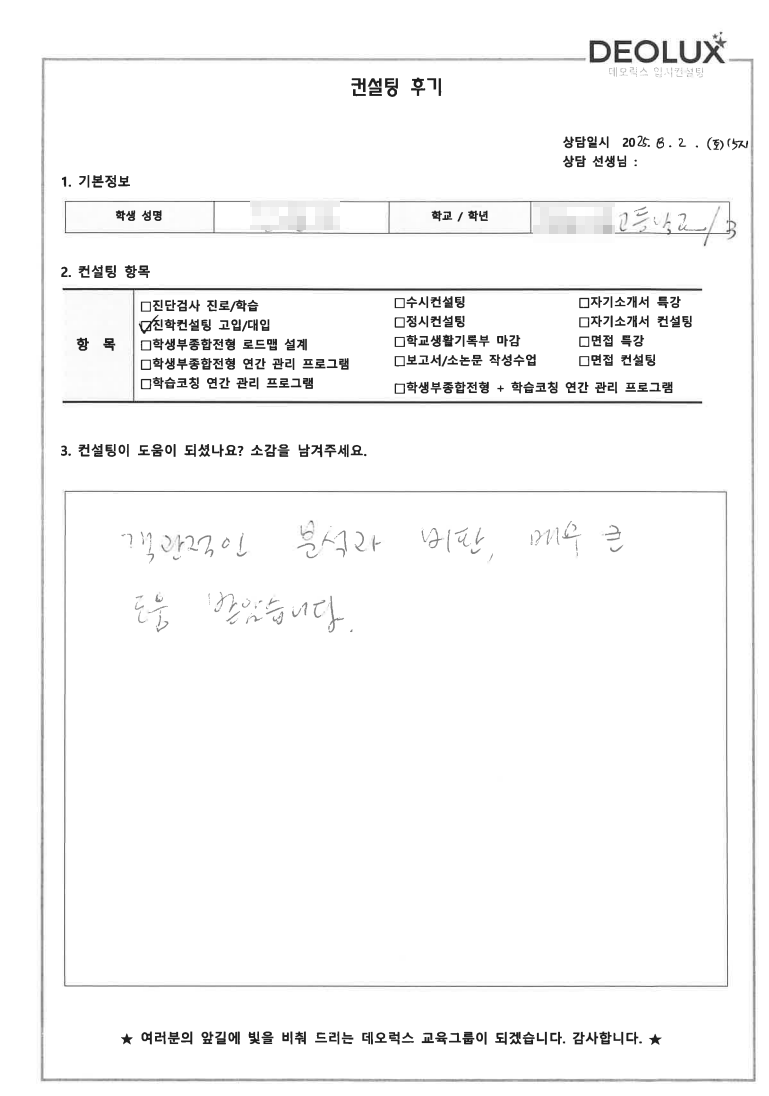 DEOLUX
데오럭스 입시컨설팅
컨설팅 후기
상담일시 2025. 8. 2. (토) 15시
상담 선생님 :
1. 기본정보
학생 성명 학교 / 학년 고등학교 / 3
2. 컨설팅 항목
항 목
□진단검사 진로/학습 □수시컨설팅 □자기소개서 특강
☑진학컨설팅 고입/대입 □정시컨설팅 □자기소개서 컨설팅
□학생부종합전형 로드맵 설계 □학교생활기록부 마감 □면접 특강
□학생부종합전형 연간 관리 프로그램 □보고서/소논문 작성수업 □면접 컨설팅
□학습코칭 연간 관리 프로그램 □학생부종합전형 + 학습코칭 연간 관리 프로그램
3. 컨설팅이 도움이 되셨나요? 소감을 남겨주세요.
객관적인 분석과 비판, 매우 큰
도움 받았습니다.
★ 여러분의 앞길에 빛을 비춰 드리는 데오럭스 교육그룹이 되겠습니다. 감사합니다. ★